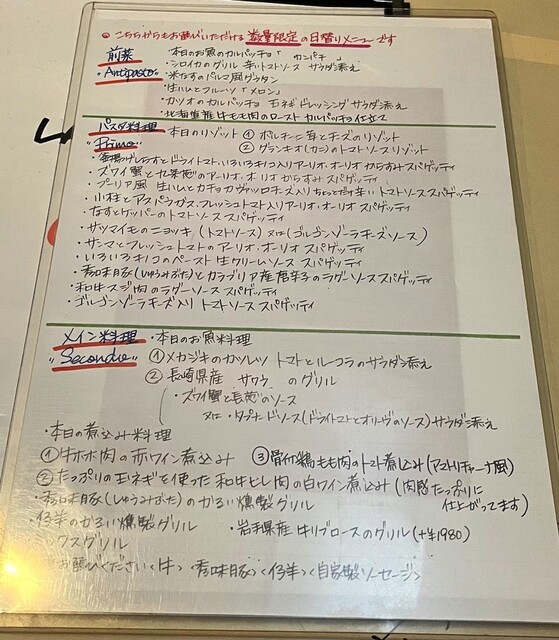 ◎ こちらからもお選びいただける数量限定の日替りメニューです
前菜
"Antipasto"
・本日のお魚のカルパッチョ「カンパチ」
・シロイカのグリル 辛いトマトソース サラダ添え
・米なすのパルマ風グラタン
・生ハムとフルーツ「メロン」
・カツオのカルパッチョ 玉ネギドレッシングサラダ添え
・北海道産牛モモ肉のロースト カルパッチョ仕立て
パスタ料理
"Primo"
本日のリゾット ① ポルチーニ茸とチーズのリゾット
② グランキオ(カニ)のトマトソースリゾット
・釜揚げしらすとドライトマトいろいろキノコ入りアーリオ・オーリオ からすみスパゲッティ
・ズワイ蟹と九条葱のアーリオ・オーリオ からすみスパゲッティ
・プーリア風 生ハムとカチョカヴァッロチーズ入りちょっとだけ辛いトマトソーススパゲッティ
・小柱とアスパラガス、フレッシュトマト入りアーリオ・オーリオ スパゲッティ
・なすとケッパーのトマトソース スパゲッティ
・サツマイモのニョッキ (トマトソース) 又は (ゴルゴンゾーラチーズソース)
・サンマとフレッシュトマトのアーリオ・オーリオ スパゲッティ
・いろいろキノコのペースト 生クリームソース スパゲッティ
・秀味豚(しゅうみぶた)とカラブリア産唐辛子のラグーソース スパゲッティ
・和牛スジ肉のラグーソース スパゲッティ
・ゴルゴンゾーラチーズ入り トマトソース スパゲッティ
メイン料理
"Secondo"
・本日のお魚料理
① メカジキのカツレツ トマトとルーコラのサラダ添え
② 長崎県産 サワラ のグリル
・ズワイ蟹と長葱のソース
又は・タプナードソース(ドライトマトとオリーヴのソース)サラダ添え
・本日の煮込み料理
① 牛ホホ肉の赤ワイン煮込み ③ 骨付鶏もも肉のトマト煮込み(アマトリチャーナ風)
② たっぷりの玉ネギを使った 和牛ヒレ肉の白ワイン煮込み (肉感たっぷりに仕上がってます)
・秀味豚(しゅうみぶた)のかるい燻製グリル
・仔羊のかるい燻製グリル ・岩手県産 牛リブロースのグリル(+¥1980)
クスグリル
お選びください〈牛〉〈秀味豚〉〈仔羊〉〈自家製ソーセージ〉